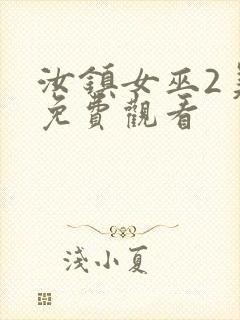 汝鎮女巫2
免費觀看
淺小夏